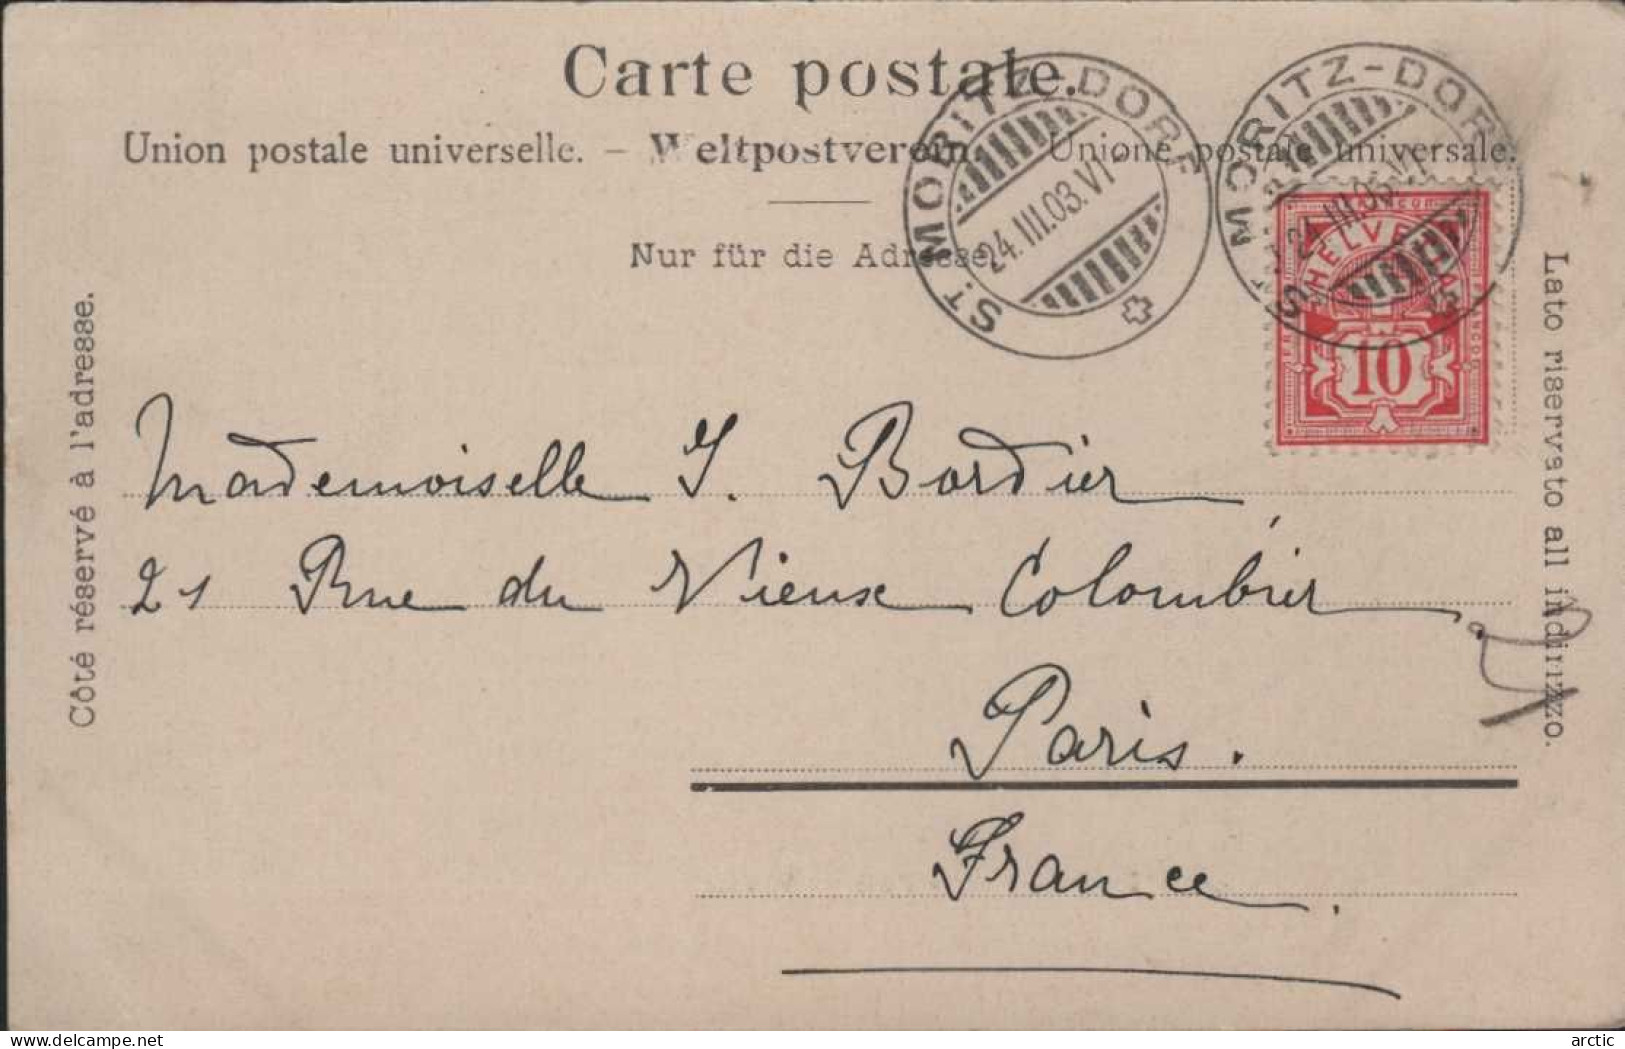 Carte postale.
Union postale universelle. – Weltpostverein. – Unione postale universale.
Nur für die Adresse.
Côté réservé à l'adresse.
Lato riservato all indirizzo.
ST MORITZ-DORF
24.III.03.VI-
ST MORITZ-DORF
24.III.03.VI-
HELVETIA
10
Mademoiselle J. Bordier,
21 Rue du Vieux Colombier
Paris.
France.
delcampe.net
arctic